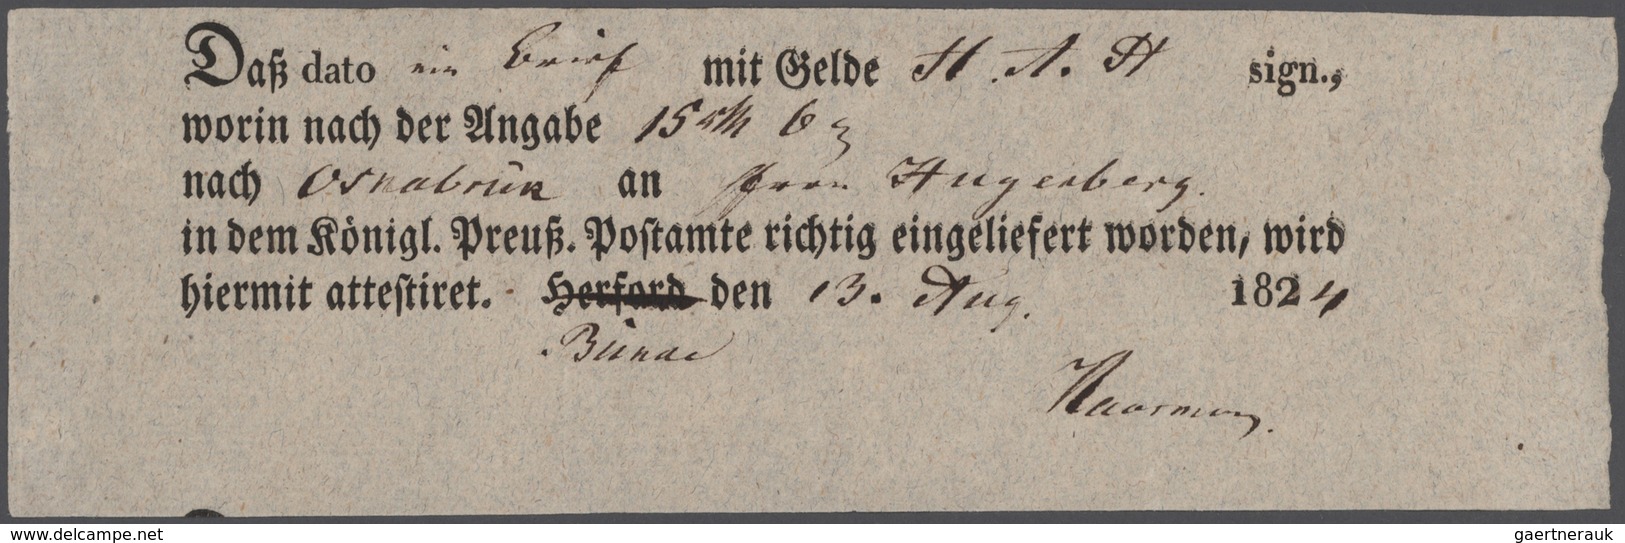 Daß dato ein Brief mit Gelde H. A. H sign.,
worin nach der Angabe 15 rth 6
nach Osnabrük an Hugerberg.
in dem Königl. Preuß. Postamte richtig eingeliefert worden, wird
hiermit attestiret. Herford den 13. Aug. 1824
Bünde
delcampe.net
gaertnerauk